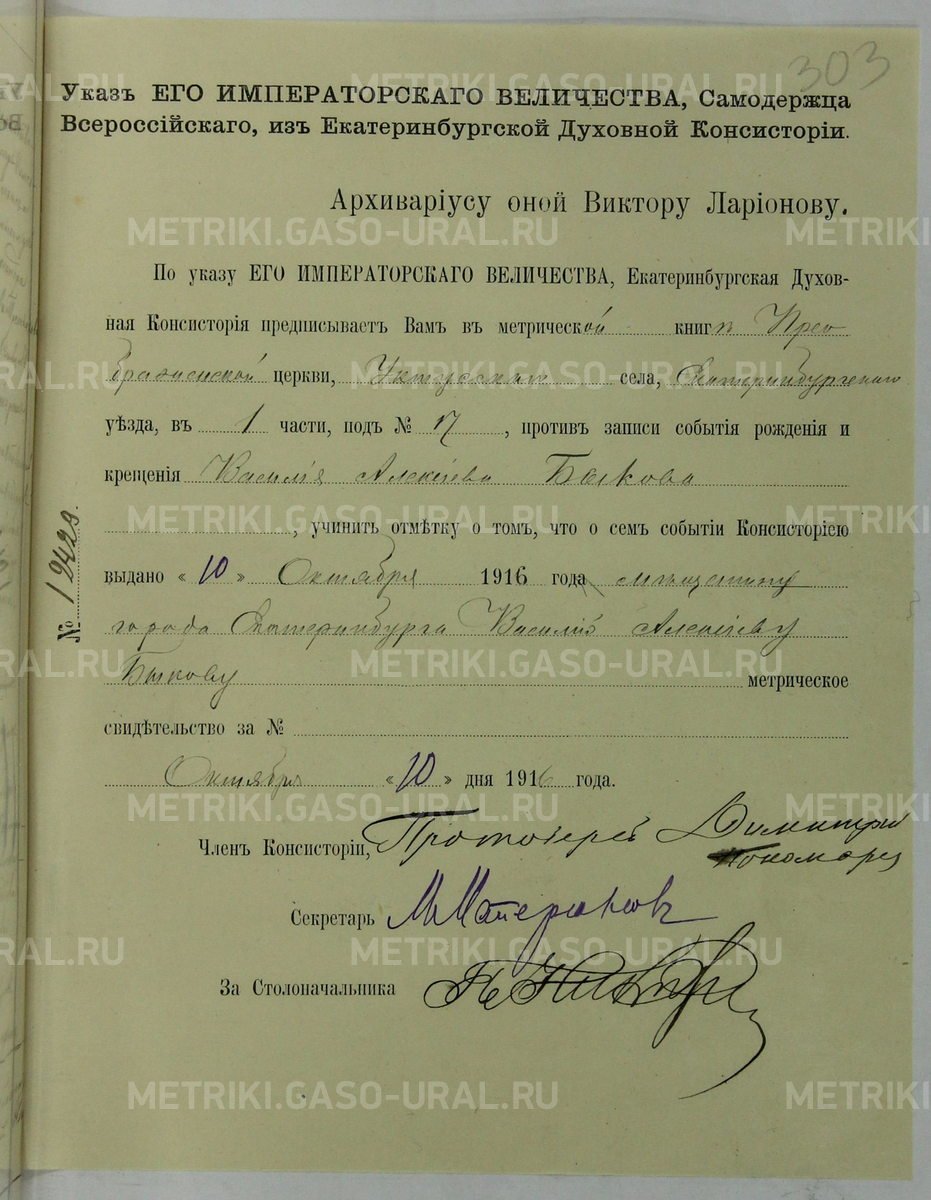 303
Указъ ЕГО ИМПЕРАТОРСКАГО ВЕЛИЧЕСТВА, Самодержца
Всероссійскаго, изъ Екатеринбургской Духовной Консисторіи.
Архиваріусу оной Виктору Ларіонову.
По указу ЕГО ИМПЕРАТОРСКАГО ВЕЛИЧЕСТВА, Екатеринбургская Духов-
ная Консисторія предписываетъ Вамъ въ метрической книгѣ Прео
браженской церкви, Уктусскаго села, Екатеринбургскаго
уѣзда, въ 1 части, подъ № 17, противъ записи событія рожденія и
крещенія Василія Алексіева Быкова
, учинить отмѣтку о томъ, что о семъ событіи Консисторіею
выдано «10» Октября 1916 года мѣщанину
города Екатеринбурга Василію Алексіеву
Быкову метрическое
свидѣтельство за №
Октября «10» дня 1916 года.
№ 12429.
Членъ Консисторіи, Протоіерей Димитрій
Секретарь М. Матерановъ
За Столоначальника
METRIKI.GASO-URAL.RU